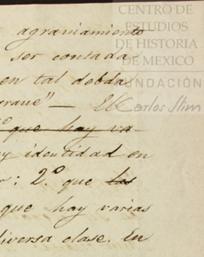 agraviamiento
ser contada
en tal dobda
grave" —
2.º que hay va-
y identidad en
r: 2.º que las
que hay varias
diversa clase. En
CENTRO DE
ESTUDIOS
DE HISTORIA
DE MEXICO
FUNDACIÓN
Carlos Slim